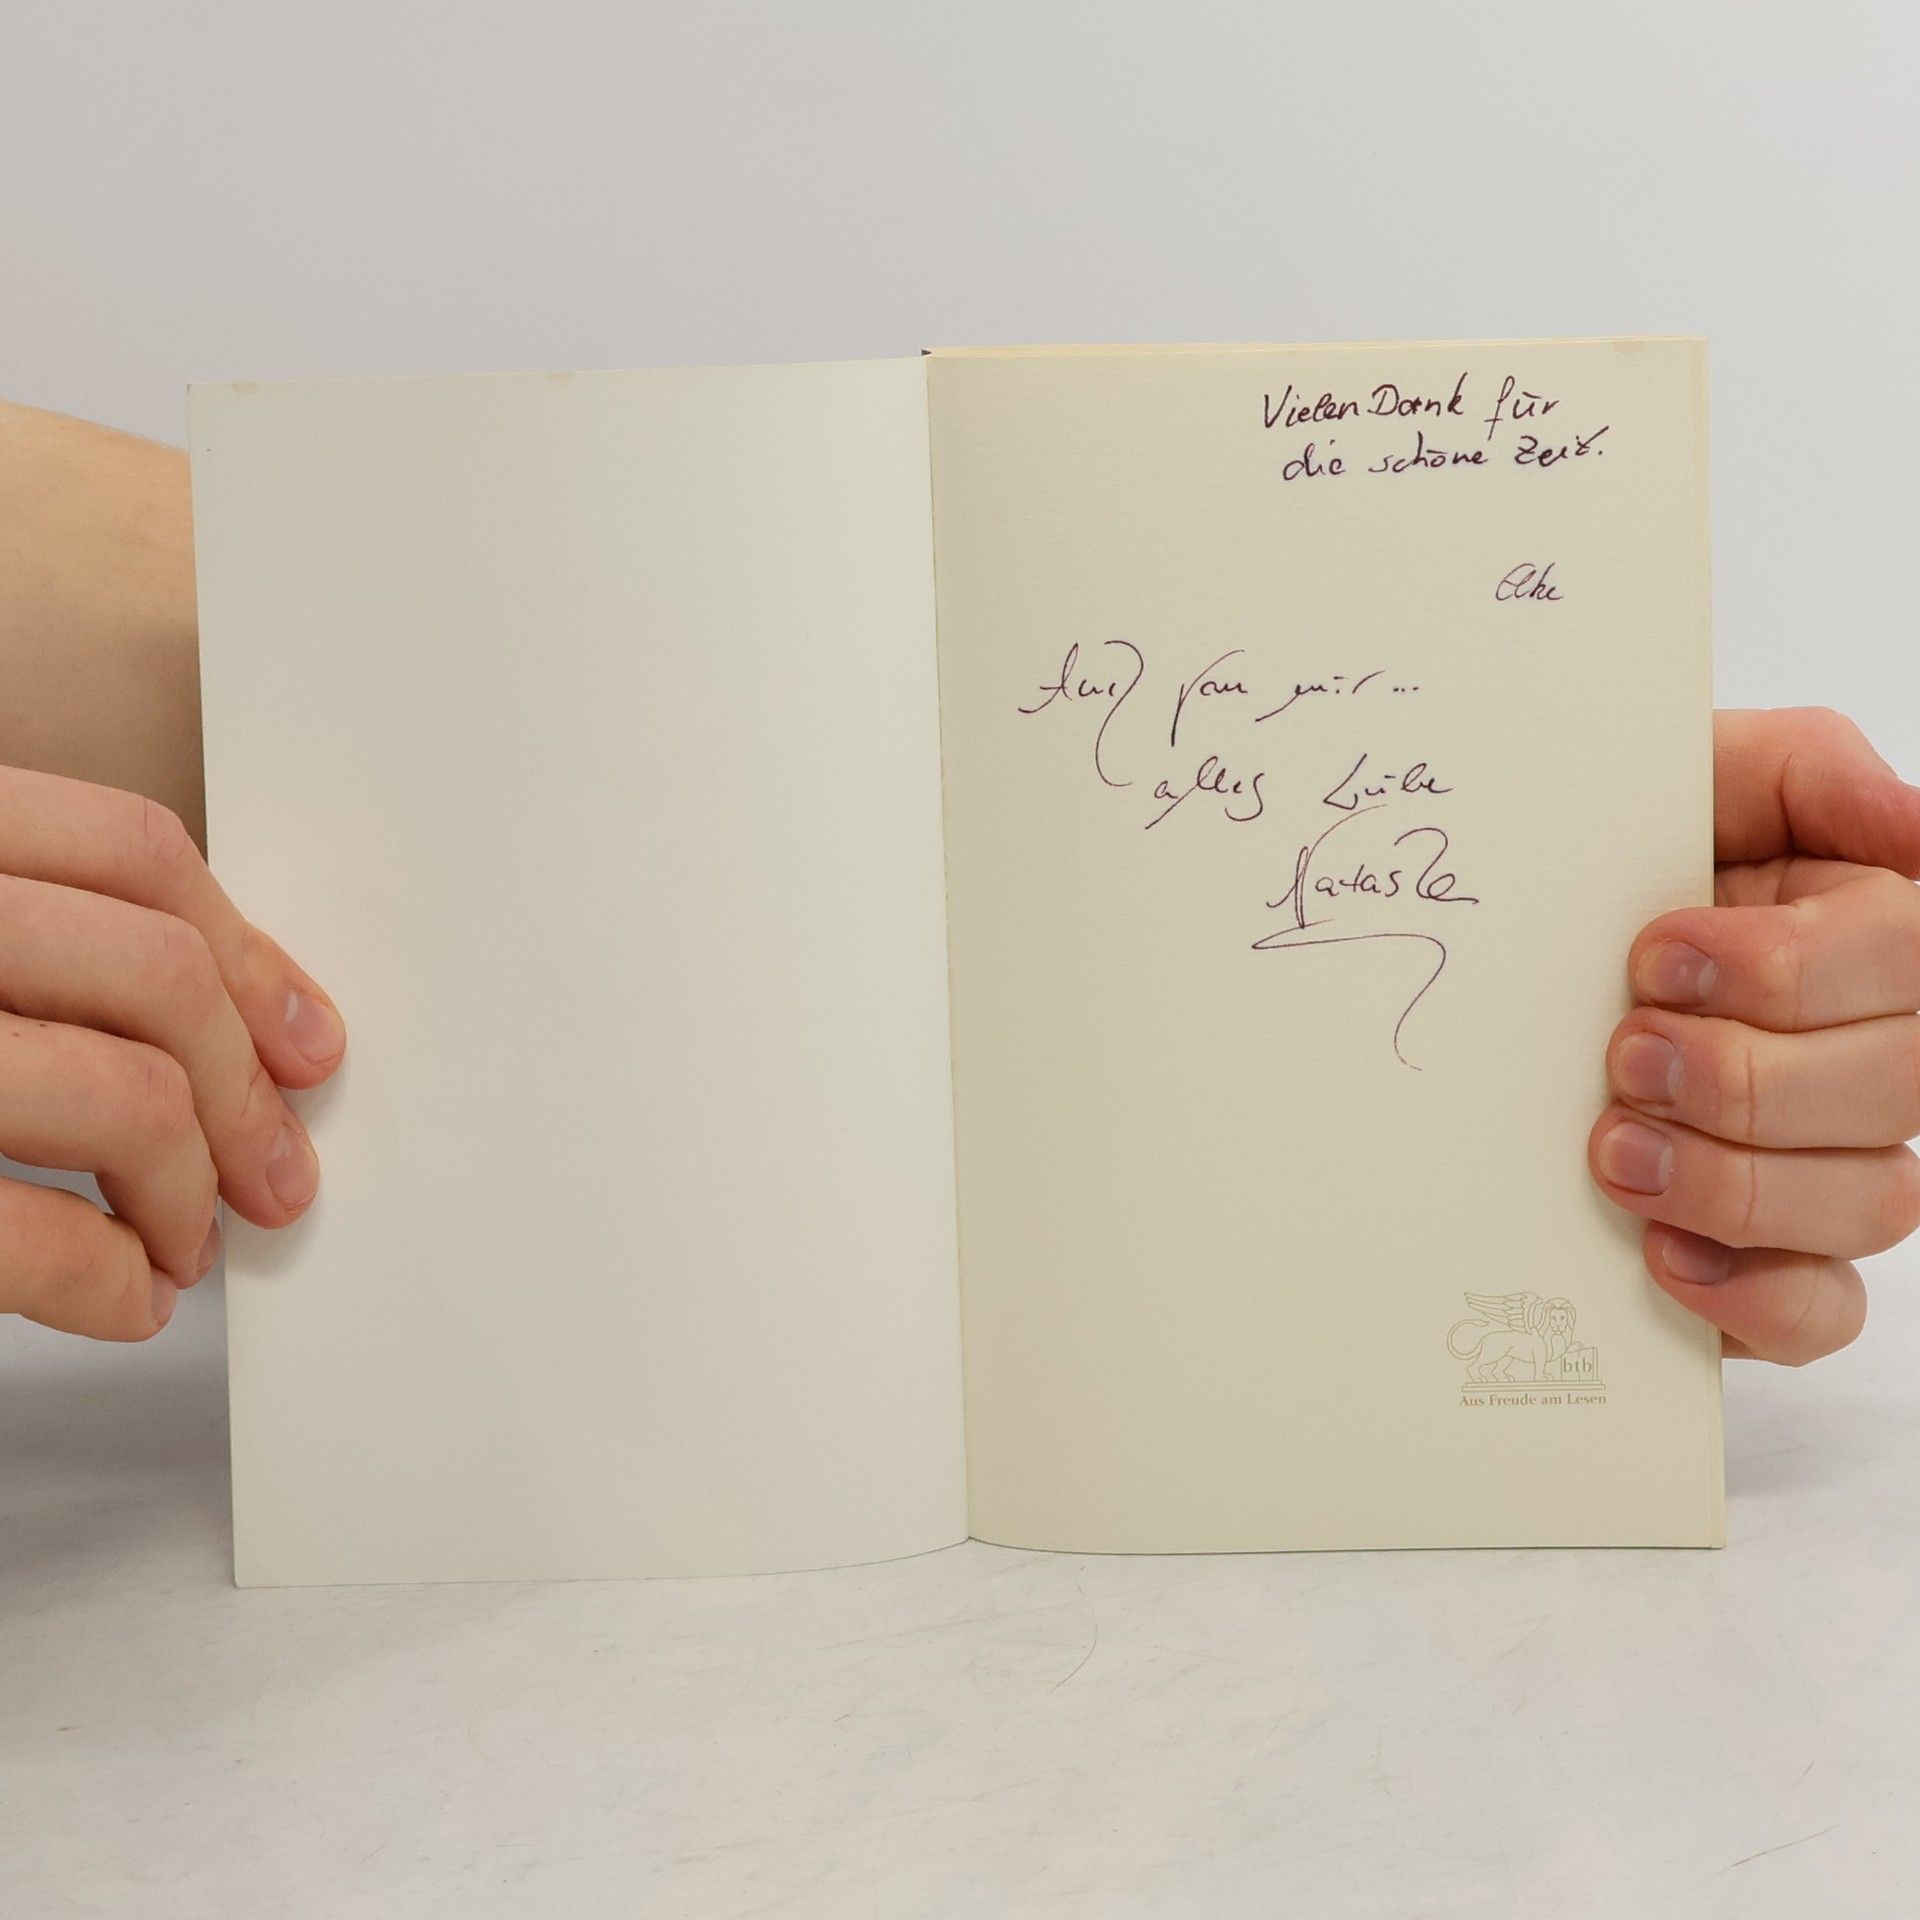 Vielen Dank für
die schöne Zeit.
Auch von mir...
alles Liebe
Natascha
btb
Aus Freude am Lesen